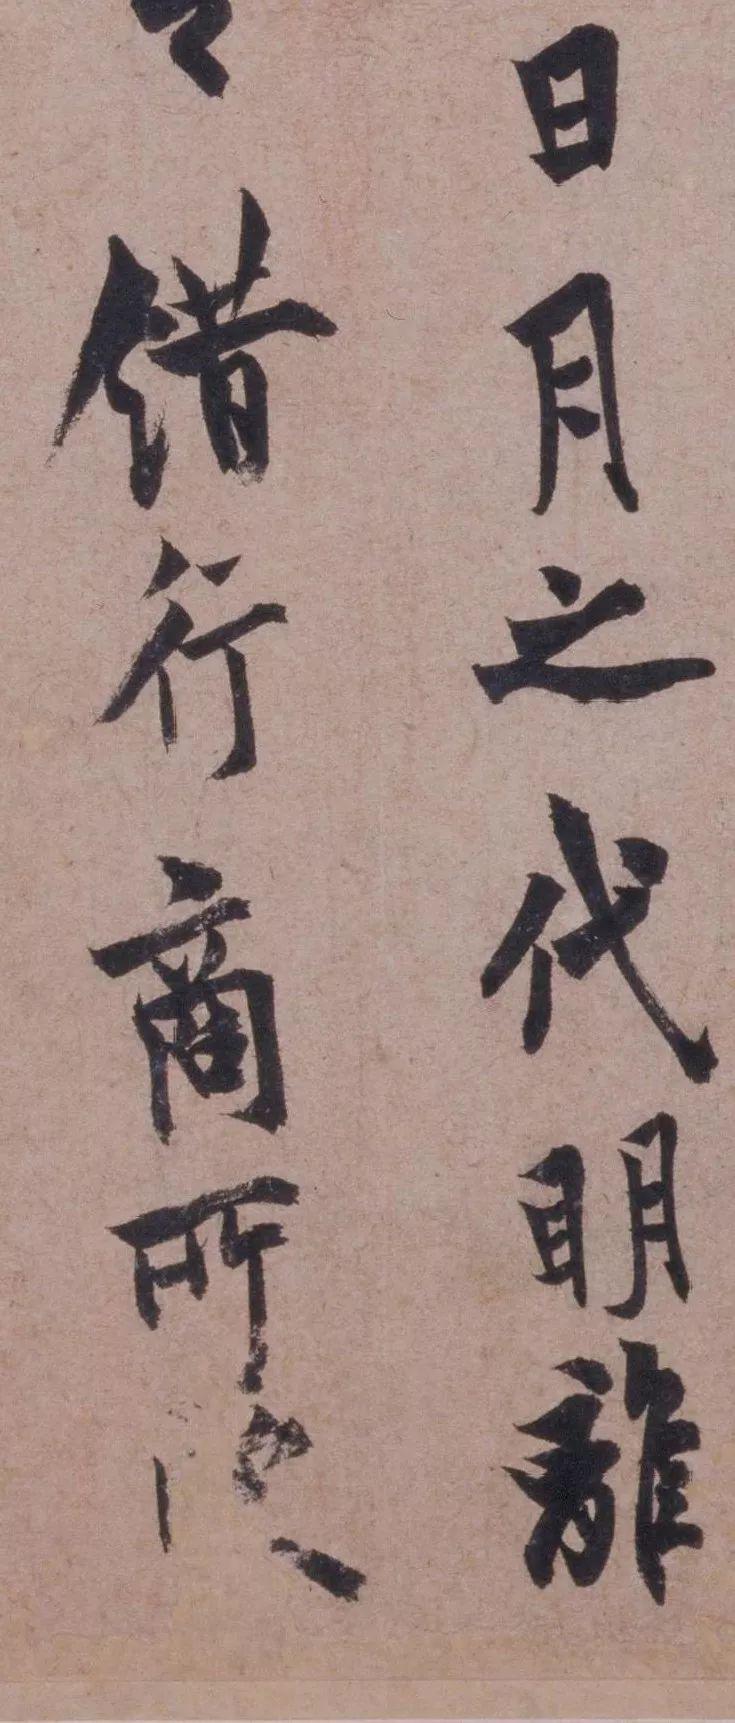 日月之代明離
錯行商所